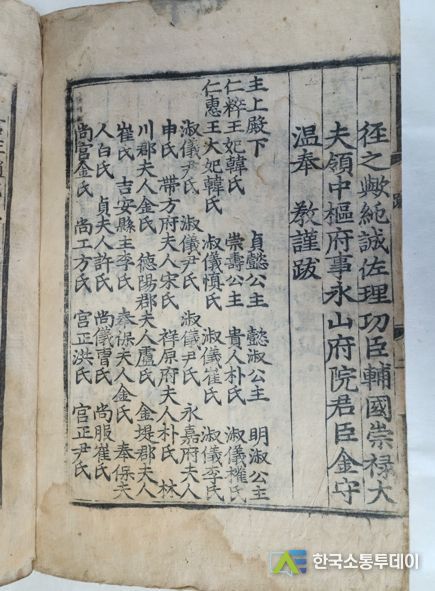 徑之歟純誠佐理功臣輔國崇祿大
夫領中樞府事永山府院君臣金守
温奉 敎謹跋
主上殿下 貞懿公主 懿淑公主 明淑公主
仁粹王妃韓氏 崇壽公主 貴人朴氏 淑儀權氏
仁惠王大妃韓氏 淑儀愼氏 淑儀崔氏 淑儀李氏
淑儀尹氏 淑儀尹氏 淑儀尹氏 永嘉府夫人
申氏 帶方府夫人宋氏 梓原府夫人朴氏 林
川郡夫人金氏 德陽郡夫人盧氏 金堤郡夫人
崔氏 吉安縣主李氏 奉保夫人金氏 奉保夫
人白氏 貞夫人許氏 尚儀曺氏 尚服崔氏
尚宮金氏 尚工方氏 宮正洪氏 宮正尹氏
한국소통투데이